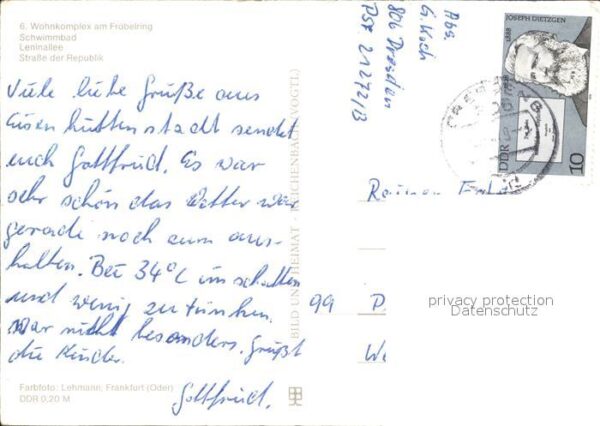 6. Wohnkomplex am Fröbelring
Schwimmbad
Leninallee
Straße der Republik
Viele liebe Grüße aus
Eisenhüttenstadt sendet
euch Gottfried. Es war
sehr schön das Wetter war
gerade noch zum aus-
halten. Bei 34°C im schatten
und wenig zu trinken.
War nicht besonders. Grüßt
die Kinder.
Gottfried.
Farbfoto: Lehmann, Frankfurt (Oder)
DDR 0,20 M
BILD UND HEIMAT · REICHENBACH (VOGTL)
Abs.
G. Koch
806 Dresden
PSF 21272/B
JOSEPH DIETZGEN
1828
1888
DDR
10
Rainer
99 P
We
privacy protection
Datenschutz